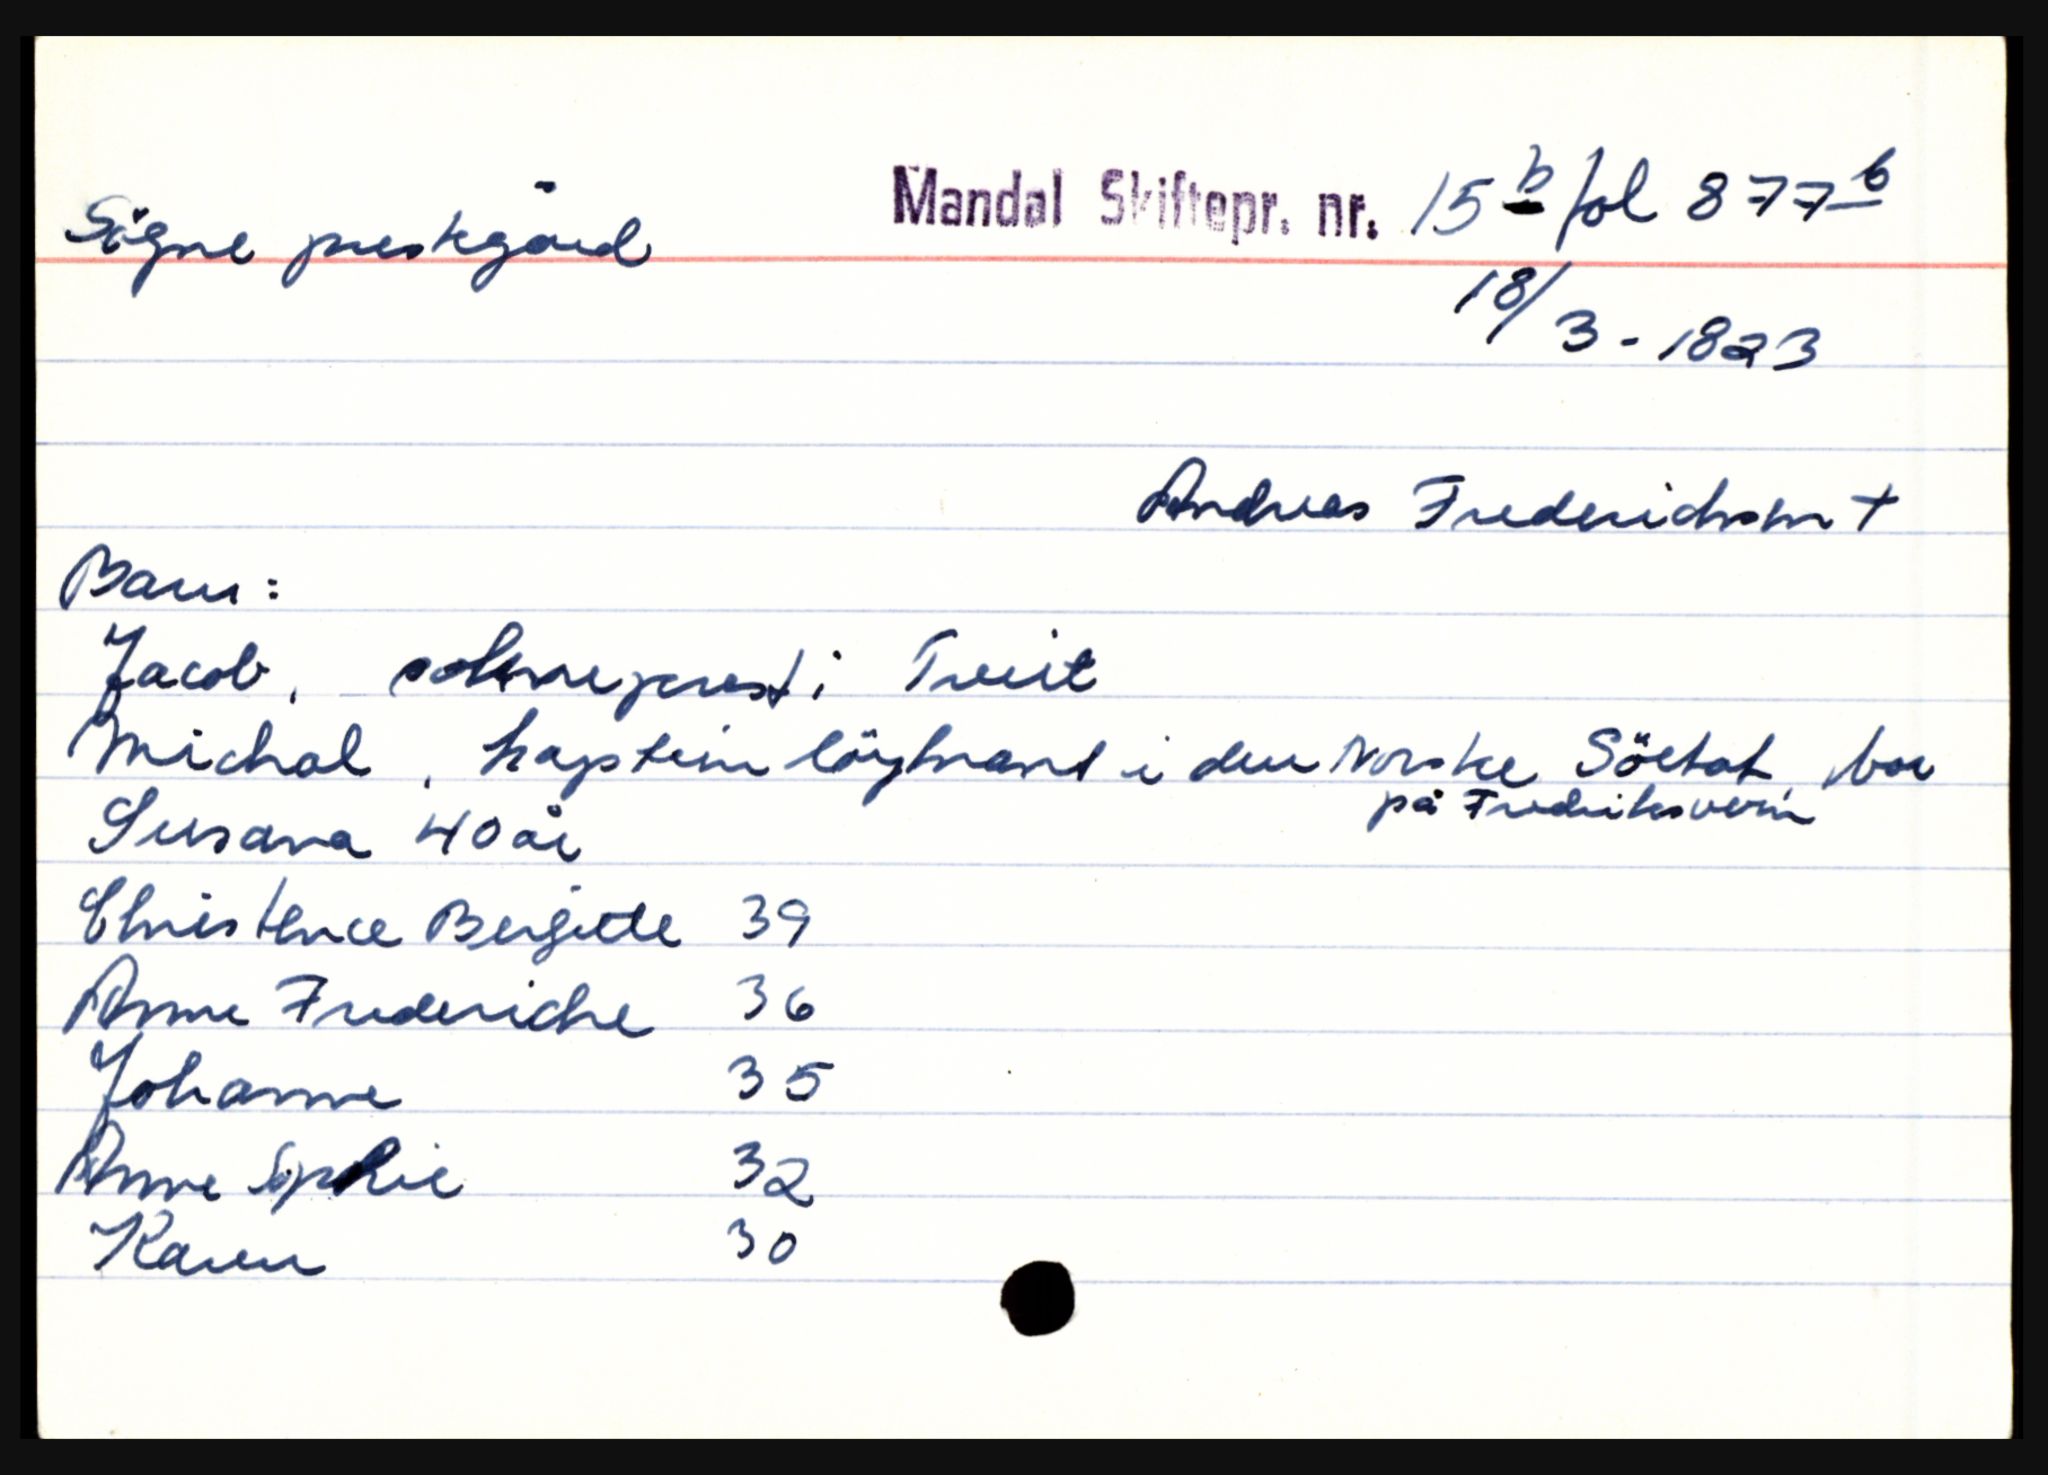 Sögne prestgård Mandal Skiftepr. nr. 15 b fol 877 b
18/3 - 1823
Andreas Frederichsen †
Barn:
Jacob, sokneprest i Tveit
Michal, kaptein löytnant i den Norske Söetat, bor
på Fredriksvern
Susana 40 år
Christence Bergitte 39
Anne Frederiche 36
Johanne 35
Anne Sophie 32
Karen 30